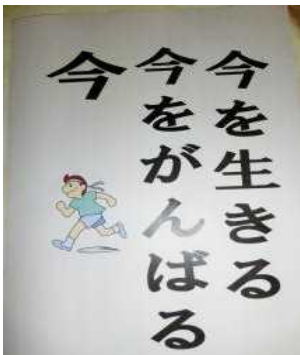 今を生きる
今をがんばる
今